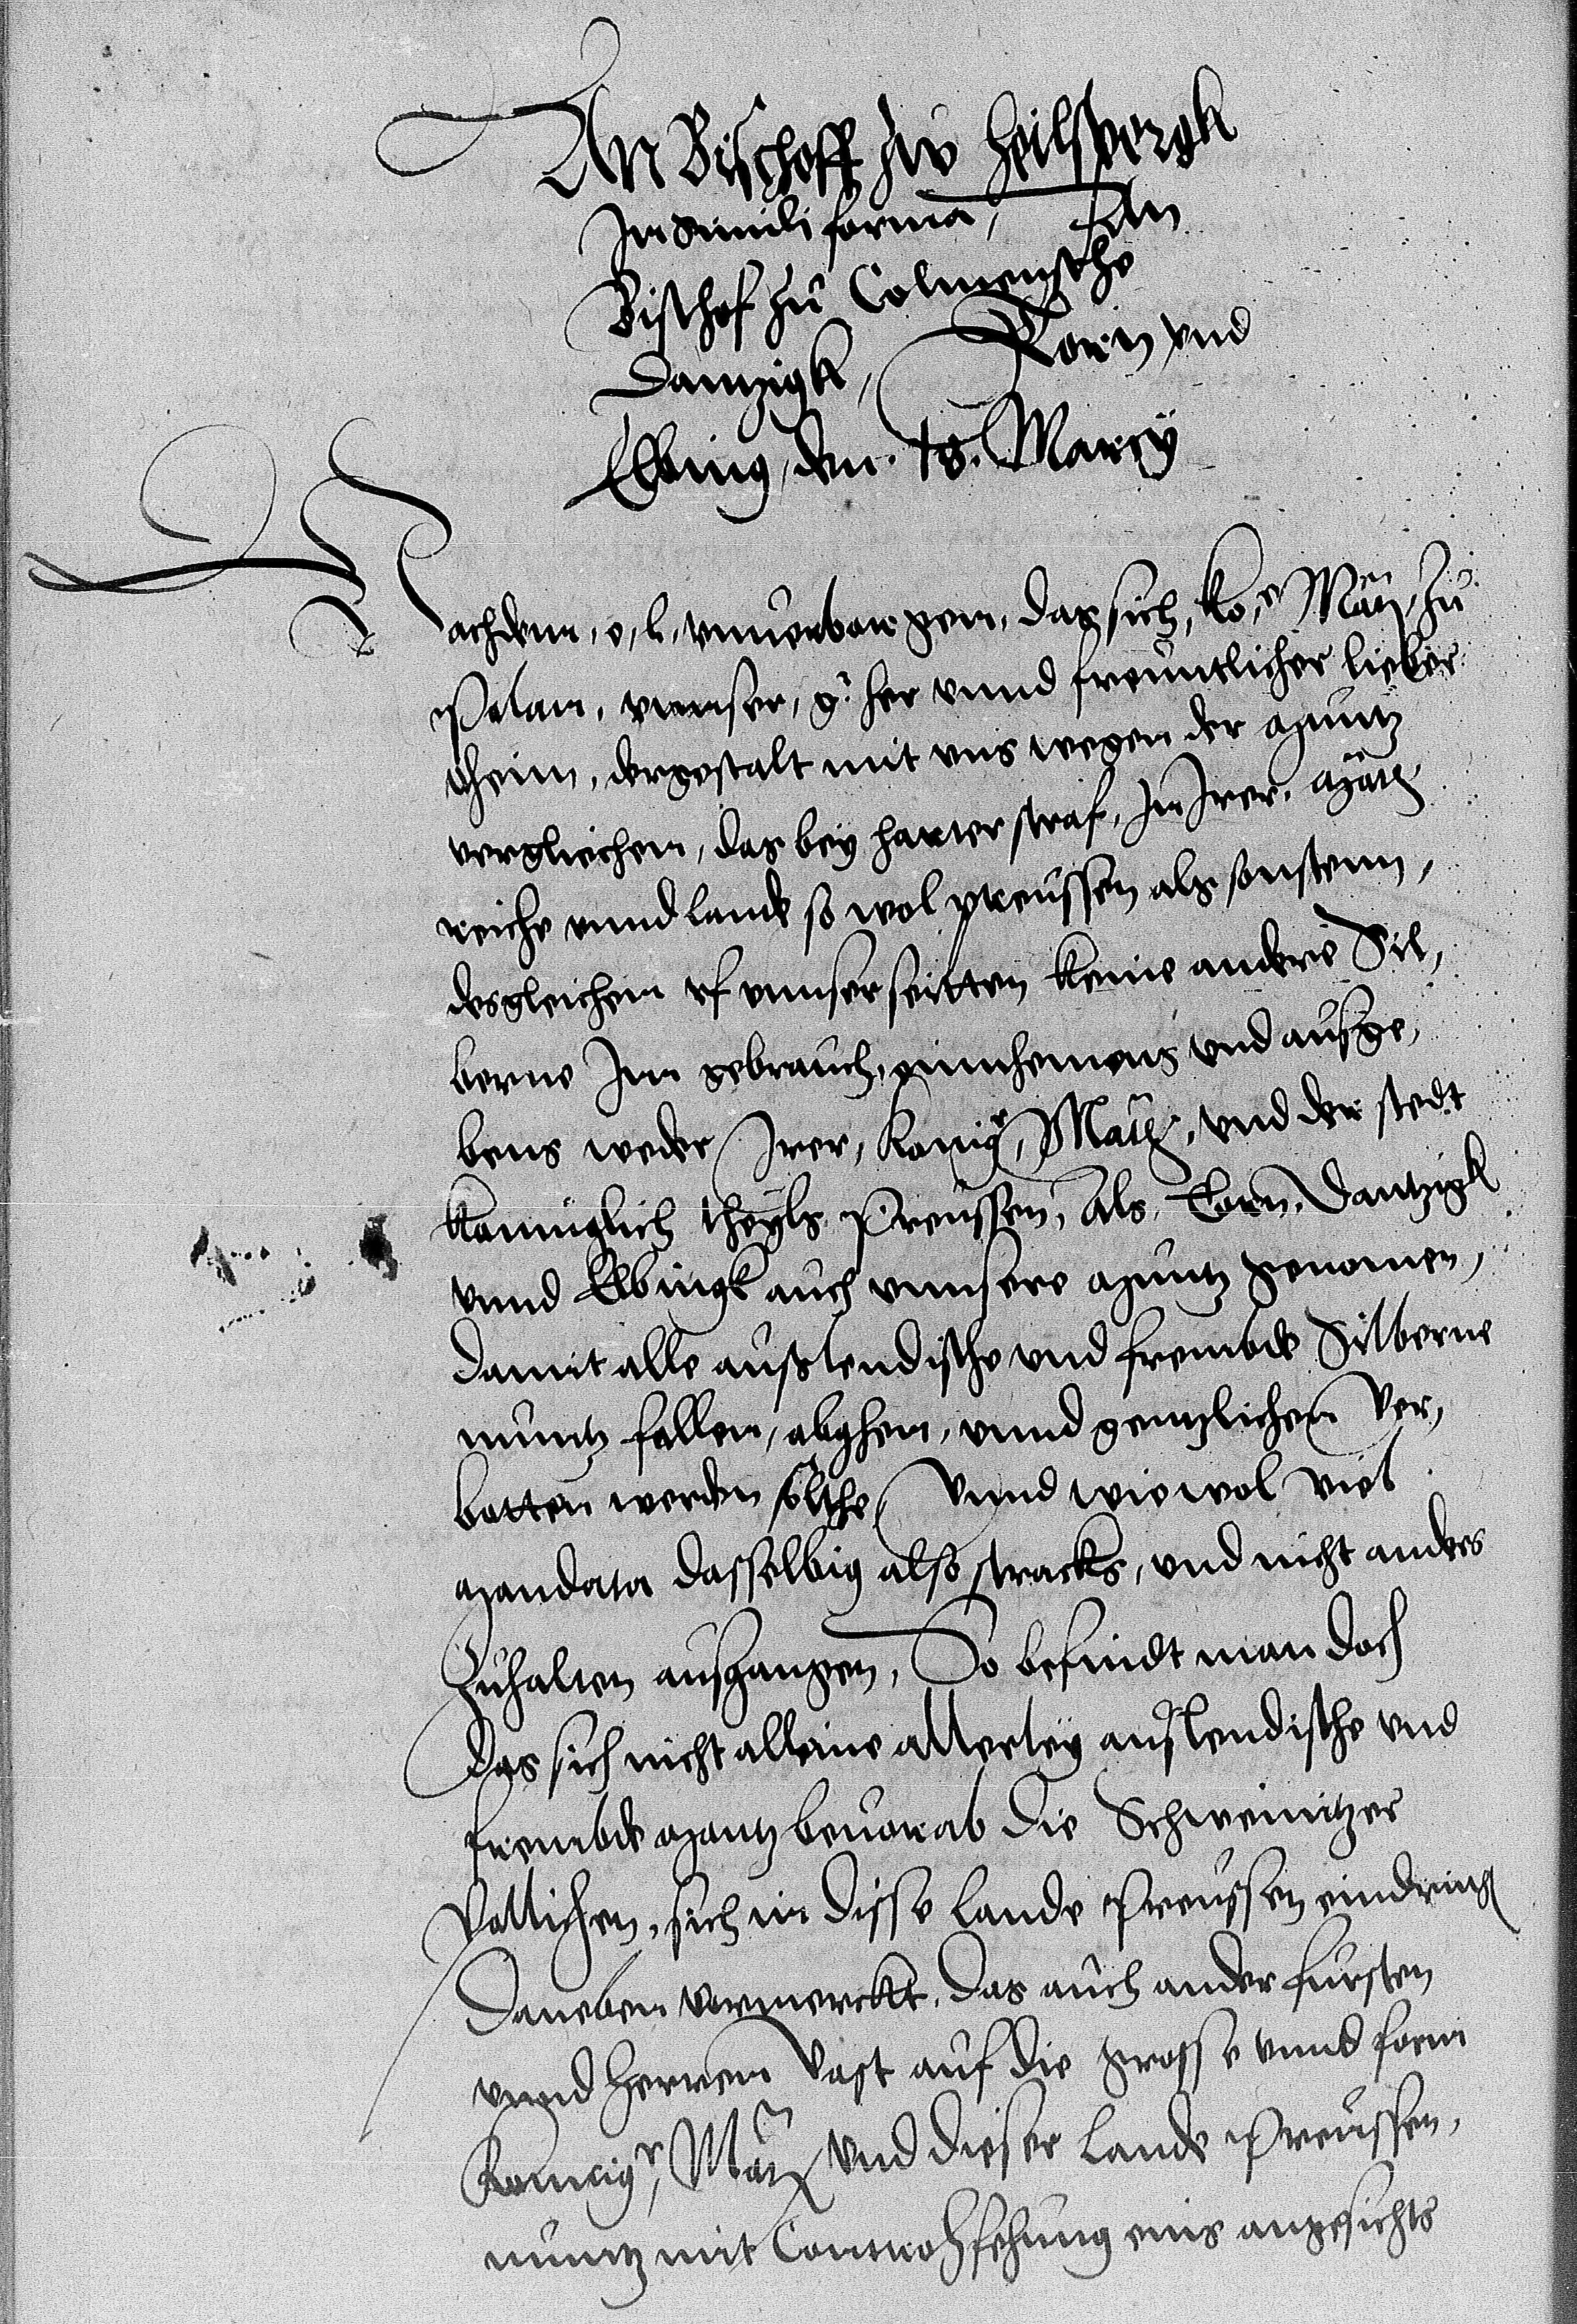 An Bischoff zw Heilspergk
In simili forma, An
Bischof zu Colmensehe
Dantzigk, Torn vnd
Elbing, den .18. Marcy
Nachdem, e, l, vnuerborgen, das sich, ko,e Mat, zu
Polan, vnnser, g. her vnnd freuntlicher lieber
Oheim, dergestalt mit vns wegen der Muntz
vergliechen, das bey harter straf, In Irer, Mat
reiche vnnd lande so wol Preussen als sonstenn,
desgleichen vf vnnser seitten keine andere Sil,
berne Im gebrauch, Einnhemens vnd ausge,
bens weder Irer, konig,r Mat, vnd der stedt
konniglich theyls Preussen, Als, Torn, Dantzigk
vnnd Elbingk auch vnnsere Muntz genomen,
Damit alle auslendische vnd frembde Silberne
muntz fallen, abghen, vnnd gentzlichen Ver,
botten werden solthe, Vnnd wiewol viel
Mandata dasselbig also stracks, vnd nicht anders
Zuhalten ausgangen, So befindt man doch
Das sich nicht alleine allerley auslendische vnd
frembde Muntz beuorab die Schweinitzer
Pollichen, sich in disse Lande Preussen eindring
Daneben vermerckt, das auch ander fursten
vnnd Herren Vast auf die grosse vnnd form
Konnig,r Mat vnd dieser Lande Preussen,
muntz mit Controhfehung eins angesichts